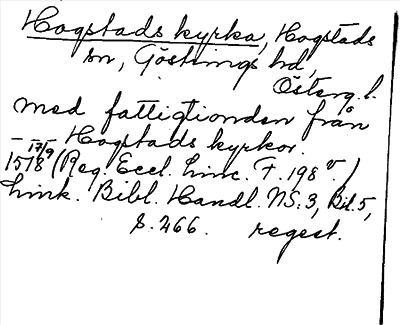 Hogstads kyrka, Hogstads
sn, Göstrings hd,
Österg. l.
med fattigtionden från
— — Hogstads kyrkor.
1518 17/9 (Reg. Eccl. Linc. F. 198 v.)
Link. Bibl. Handl. NS: 3, Bil. 5,
S. 266. regest.